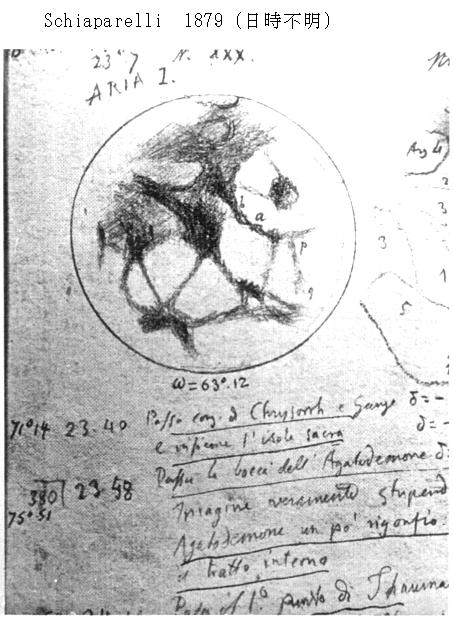 Schiaparelli 1879 (日時不明)
23 7 N. XXX.
ARIA I.
Arg 4
2
b
a
3
3
p
1
q
5
ω=63°.12
71°14 23.40 Passa cong. di Chrysorrh e Gange δ=-
e vipione l'isola sacra δ=-
380 23 58 Passa la bocca dell'Agatodemone δ=
75°51 Imagine veramente stupend
Agatodemone un po' rigonfio
tratto interno
Passa il 1° punto di Thauma